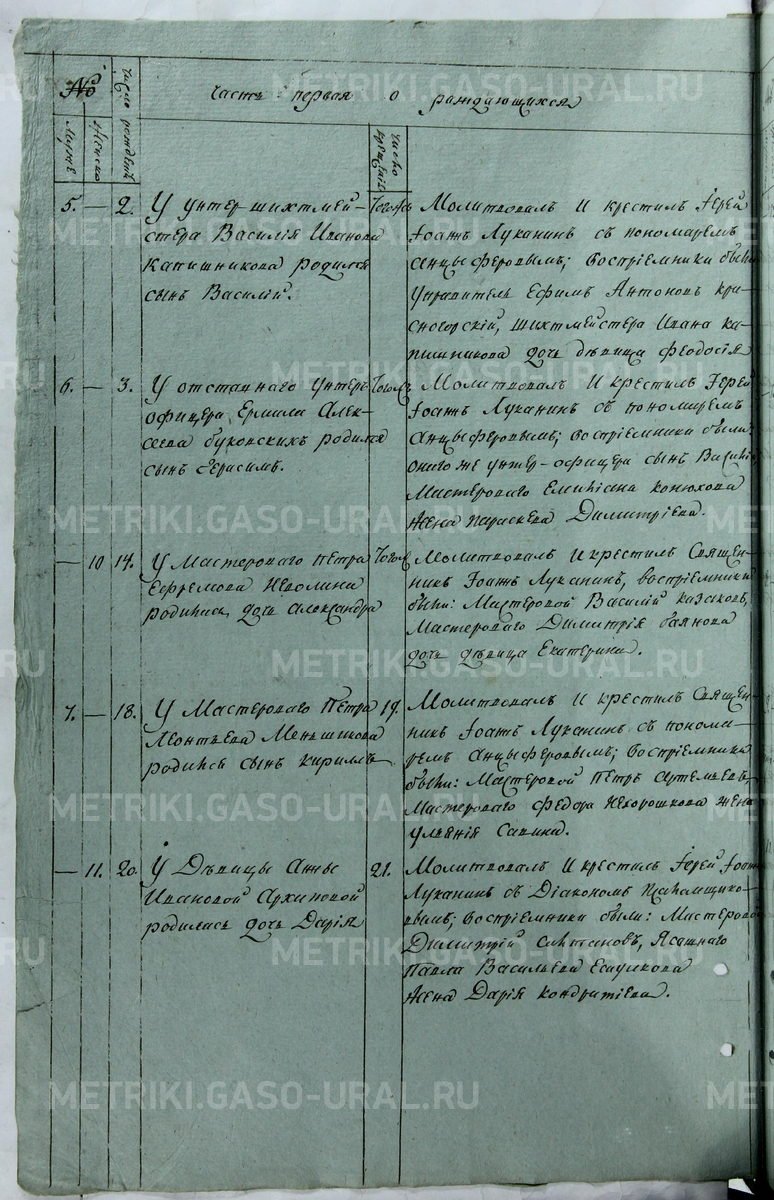 №
Мужс
Женско
Число рожденiя
Часть первая о раждающихся
число крещенiя
5. — 2. У унтер-шихтмей-
стера Василiя Иванова
Капишникова родился
сынъ Василiй.
Тогожъ
Молитвовалъ и крестилъ Iерей
Iоаннъ Луканинъ съ пономаремъ
Анцыферовымъ; Восприемники были
Управитель Ефимъ Антоновъ Кра-
сногорскiй, шихтмейстера Ивана Ка-
пишникова дочь дѣвица Феодосiя
6. — 3. У отставнаго унтеръ
офицера Ермила Алек-
сеева Буковскихъ родился
сынъ Герасимъ.
Тогожъ
Молитвовалъ и крестилъ Iерей
Iоаннъ Луканинъ съ пономаремъ
Анцыферовымъ; Восприемники были
онаго же унтер-офицера сынъ Василiй
Мастероваго Емилiана Конюхова
жена Параскева Димитрiева.
— 10 14. У Мастероваго Петра
Ефремова Неволина
родилась дочь Александра
Тогожъ
Молитвовалъ и крестилъ Священ-
никъ Iоаннъ Луканинъ, воспрiемники
были: Мастеровой Василiй Казаковъ,
Мастероваго Димитрiя Баянова
дочь дѣвица Екатерина.
7. — 18. У Мастероваго Петра
Леонтьева Меньшикова
родился сынъ Кирилъ
19.
Молитвовалъ и крестилъ Священ-
никъ Iоаннъ Луканинъ съ понома-
ремъ Анцыферовымъ; Восприемники
были: Мастеровой Петръ Артемьевъ,
Мастероваго Федора Нехорошкова жена
Улiянiя Савина.
— 11. 20. У Дѣвицы Анны
Ивановой Архиповой
родилась дочь Дарiя
21.
Молитвовалъ и крестилъ Iерей Iоаннъ
Луканинъ съ Дiакономъ
вымъ; Восприемники были: Мастеровой
Димитрiй Слѣпановъ, Ясашнаго
Павла Васильева Есаулкова
жена Дарiя Кондратiева.
METRIKI.GASO-URAL.RU